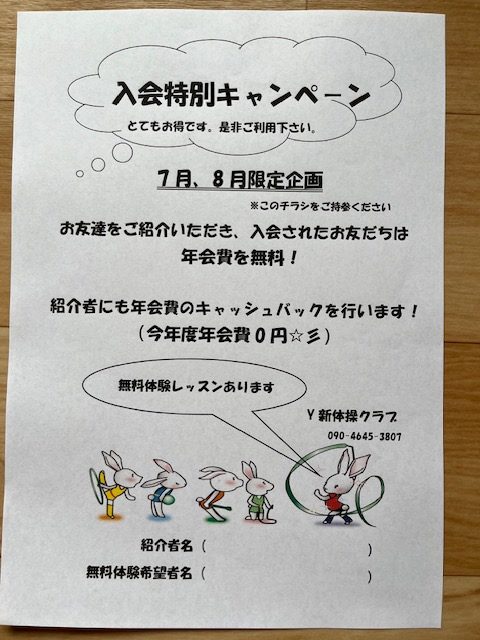 入会特別キャンペーン
とてもお得です。是非ご利用下さい。
７月、８月限定企画
※このチラシをご持参ください
お友達をご紹介いただき、入会されたお友だちは
年会費を無料！
紹介者にも年会費のキャッシュバックを行います！
（今年度年会費０円☆彡）
無料体験レッスンあります
Ｙ新体操クラブ
090-4645-3807
紹介者名（　　　　　　　　　　）
無料体験希望者名（　　　　　　　　　　）